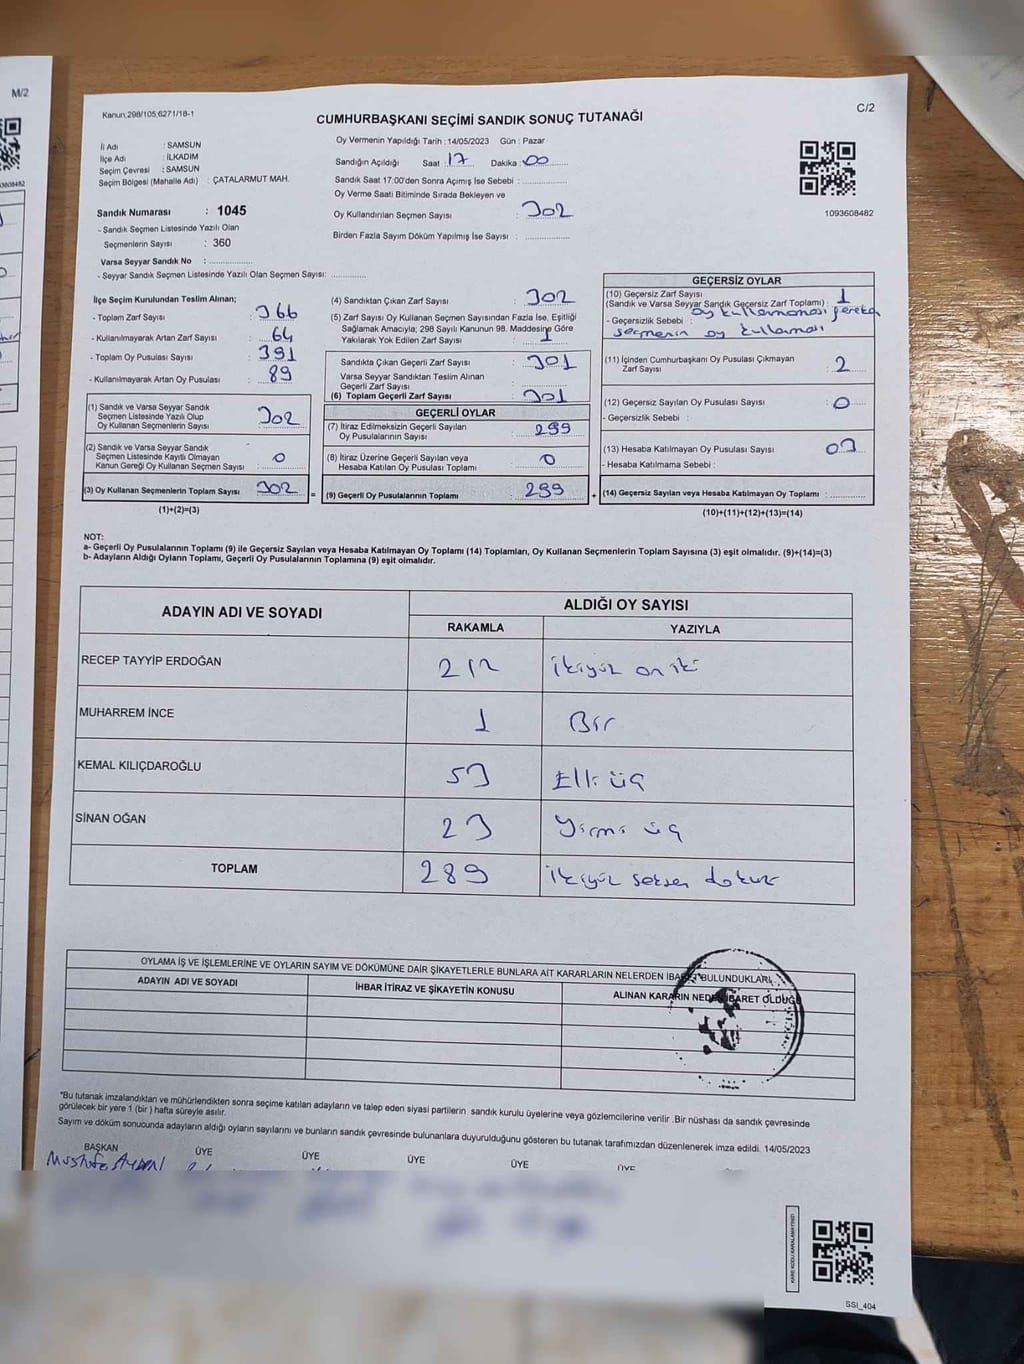 M/2
93608482
Kanun;298/105,6271/18-1
C/2
CUMHURBAŞKANI SEÇİMİ SANDIK SONUÇ TUTANAĞI
İl Adı : SAMSUN
İlçe Adı : İLKADIM
Seçim Çevresi : SAMSUN
Seçim Bölgesi (Mahalle Adı) : ÇATALARMUT MAH.
Sandık Numarası : 1045
- Sandık Seçmen Listesinde Yazılı Olan
Seçmenlerin Sayısı : 360
Varsa Seyyar Sandık No : ..............
- Seyyar Sandık Seçmen Listesinde Yazılı Olan Seçmen Sayısı: ............
Oy Vermenin Yapıldığı Tarih : 14/05/2023 Gün : Pazar
Sandığın Açıldığı Saat : 17 Dakika : 00
Sandık Saat 17:00'den Sonra Açımış İse Sebebi : ..............
Oy Verme Saati Bitiminde Sırada Bekleyen ve
Oy Kullandırılan Seçmen Sayısı : 302
Birden Fazla Sayım Döküm Yapılmış İse Sayısı : ..............
1093608482
İlçe Seçim Kurulundan Teslim Alınan;
- Toplam Zarf Sayısı : 366
- Kullanılmayarak Artan Zarf Sayısı : 64
- Toplam Oy Pusulası Sayısı : 391
- Kullanılmayarak Artan Oy Pusulası : 89
(1) Sandık ve Varsa Seyyar Sandık
Seçmen Listesinde Yazılı Olup
Oy Kullanan Seçmenlerin Sayısı : 302
(2) Sandık ve Varsa Seyyar Sandık
Seçmen Listesinde Kayıtlı Olmayan
Kanun Gereği Oy Kullanan Seçmen Sayısı : 0
(3) Oy Kullanan Seçmenlerin Toplam Sayısı : 302
(1)+(2)=(3)
(4) Sandıktan Çıkan Zarf Sayısı : 302
(5) Zarf Sayısı Oy Kullanan Seçmen Sayısından Fazla İse, Eşitliği
Sağlamak Amacıyla; 298 Sayılı Kanunun 98. Maddesine Göre
Yakılarak Yok Edilen Zarf Sayısı : 1
Sandıkta Çıkan Geçerli Zarf Sayısı : 301
Varsa Seyyar Sandıktan Teslim Alınan
Geçerli Zarf Sayısı
(6) Toplam Geçerli Zarf Sayısı : 301
GEÇERLİ OYLAR
(7) İtiraz Edilmeksizin Geçerli Sayılan
Oy Pusulalarının Sayısı : 299
(8) İtiraz Üzerine Geçerli Sayılan veya
Hesaba Katılan Oy Pusulası Toplamı : 0
= (9) Geçerli Oy Pusulalarının Toplamı : 299
GEÇERSİZ OYLAR
(10) Geçersiz Zarf Sayısı
(Sandık ve Varsa Seyyar Sandık Geçersiz Zarf Toplamı) : 1
- Geçersizlik Sebebi : oy kullanmaması gereken
seçmenin oy kullaması
(11) İçinden Cumhurbaşkanı Oy Pusulası Çıkmayan
Zarf Sayısı : 2
(12) Geçersiz Sayılan Oy Pusulası Sayısı : 0
- Geçersizlik Sebebi :
(13) Hesaba Katılmayan Oy Pusulası Sayısı : 03
- Hesaba Katılmama Sebebi :
+ (14) Geçersiz Sayılan veya Hesaba Katılmayan Oy Toplamı : ............
(10)+(11)+(12)+(13)=(14)
NOT:
a- Geçerli Oy Pusulalarının Toplamı (9) ile Geçersiz Sayılan veya Hesaba Katılmayan Oy Toplamı (14) Toplamları, Oy Kullanan Seçmenlerin Toplam Sayısına (3) eşit olmalıdır. (9)+(14)=(3)
b- Adayların Aldığı Oyların Toplamı, Geçerli Oy Pusulalarının Toplamına (9) eşit olmalıdır.
ADAYIN ADI VE SOYADI ALDIĞI OY SAYISI
RAKAMLA YAZIYLA
RECEP TAYYİP ERDOĞAN 212 ikiyüz on iki
MUHARREM İNCE 1 Bir
KEMAL KILIÇDAROĞLU 53 Elli üç
SİNAN OĞAN 23 Yirmi üç
TOPLAM 289 ikiyüz seksen dokuz
OYLAMA İŞ VE İŞLEMLERİNE VE OYLARIN SAYIM VE DÖKÜMÜNE DAİR ŞİKAYETLERLE BUNLARA AİT KARARLARIN NELERDEN İBARET BULUNDUKLARI
ADAYIN ADI VE SOYADI İHBAR İTİRAZ VE ŞİKAYETİN KONUSU ALINAN KARARIN NEDEN İBARET OLDUĞU
*Bu tutanak imzalandıktan ve mühürlendikten sonra seçime katılan adayların ve talep eden siyasi partilerin sandık kurulu üyelerine veya gözlemcilerine verilir .Bir nüshası da sandık çevresinde
görülecek bir yere 1 (bir ) hafta süreyle asılır.
Sayım ve döküm sonucunda adayların aldığı oyların sayılarını ve bunların sandık çevresinde bulunanlara duyurulduğunu gösteren bu tutanak tarafımızdan düzenlenerek imza edildi. 14/05/2023
BAŞKAN ÜYE ÜYE ÜYE ÜYE ÜYE
Mustafa
KARE KODU KARALAMAYINIZ!
SSI_404